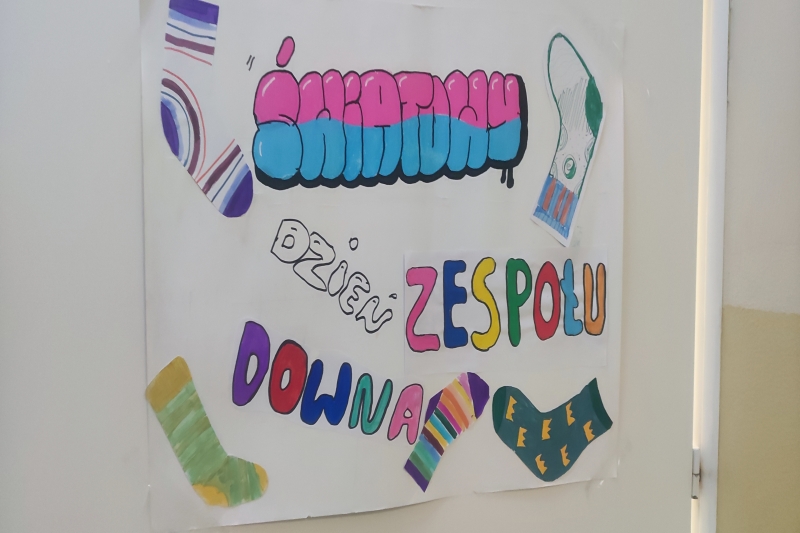 "ŚWIATOWY
DZIEŃ
ZESPOŁU
DOWNA